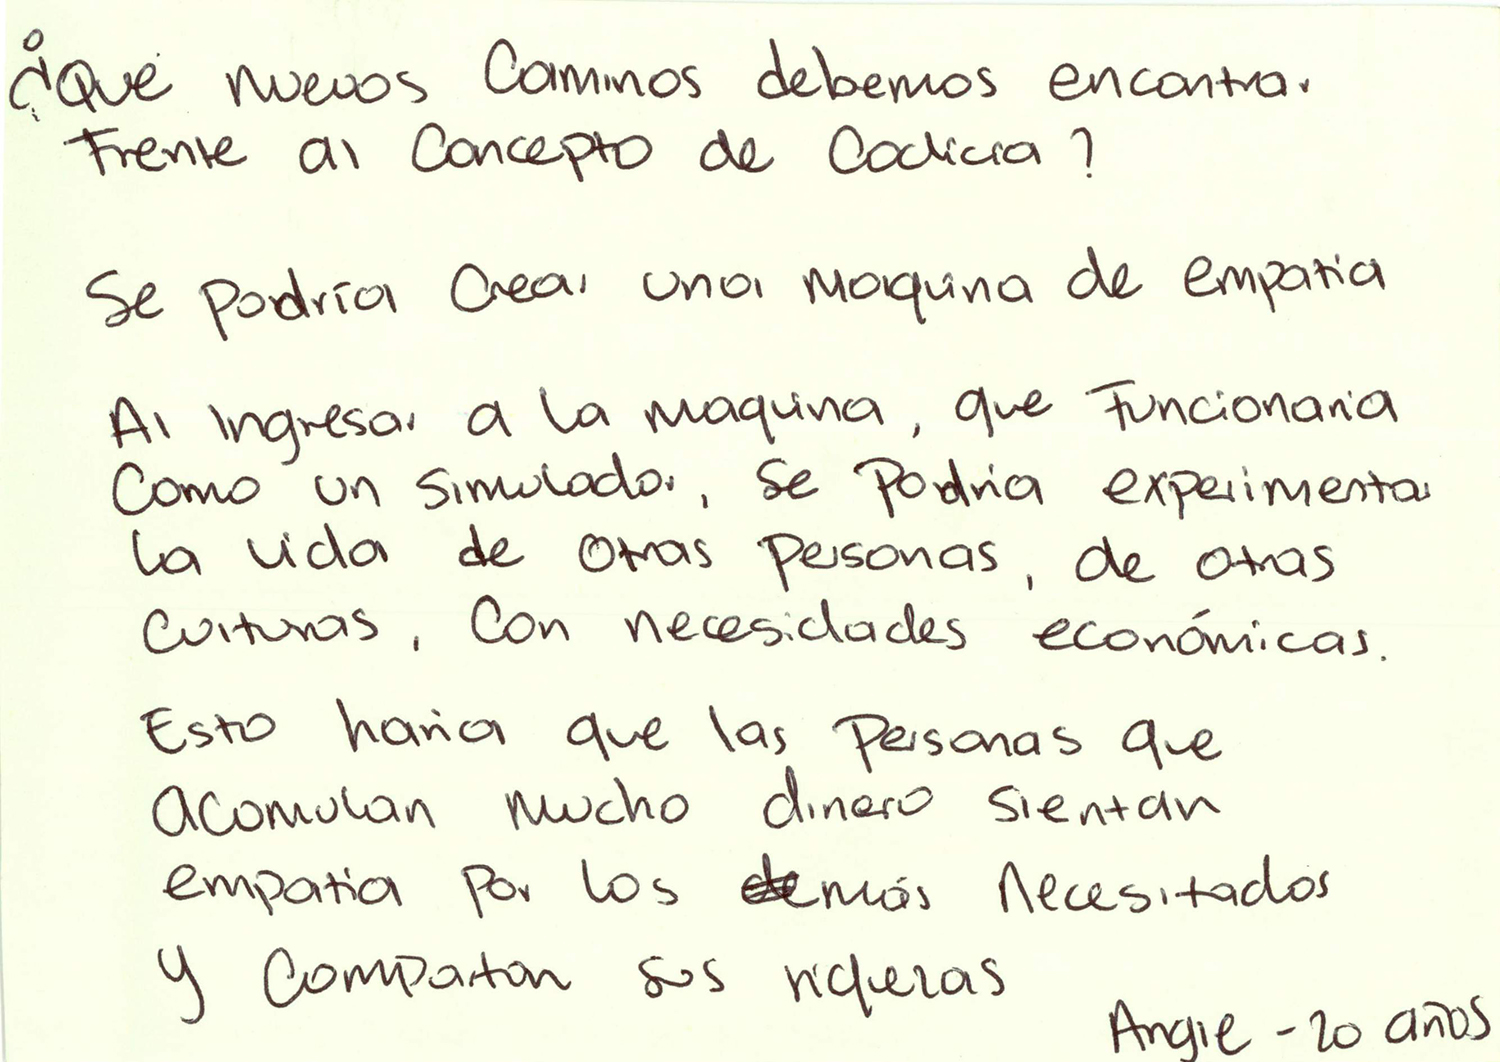 ¿Qué nuevos Caminos debemos encontrar
Frente al Concepto de Codicia?
Se podría Crear una Maquina de empatia
Al Ingresar a la maquina, que Funcionaria
Como un simulador, se Podria experimentar
la vida de otras Personas, de otras
Culturas, Con necesidades económicas.
Esto haria que las Personas que
acomulan mucho dinero sientan
empatia por los más necesitados
y Compartan sus riquezas
Angie - 20 años